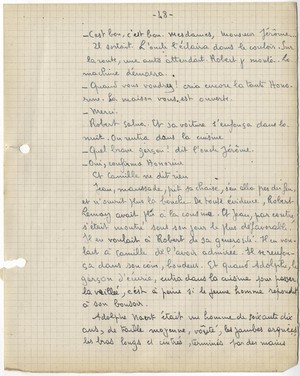 -48-
- C'est bon, c'est bon. Mesdames, monsieur Jérôme...
Il sortait. L'oncle l'éclaira dans le couloir. Sur
la route, une auto attendait. Robert y monta. La
machine démarra.
- Quand vous voudrez! cria encore la tante Hono-
rine. La maison vous est ouverte.
- Merci.
Robert salua. Et sa voiture s'enfonça dans la
nuit. On rentra dans la cuisine.
- Quel brave garçon! dit l'oncle Jérôme.
- Oui, confirma Honorine
Et Camille ne dit rien
Jean, maussade, prit sa chaise, s'en alla près du feu
et n'ouvrit plus la bouche. De toute évidence, Robert
avait plu à la cousine. Et Jean, par contre,
s'était montré sous son jour le plus défavorable.
Il en voulait à Robert de sa générosité. Il en vou-
lait à Camille de l'avoir admirée. Il se renfon-
ça dans son coin, boudeur. Et quand Adolphe, le
garçon d'écurie, entra dans la cuisine pour passer
la veillée, c'est à peine si le jeune homme répondit
à son bonsoir.
Adolphe était un homme de soixante-dix
ans, de taille moyenne, voûté, les jambes arquées
les bras longs et cintrés, terminés par des mains